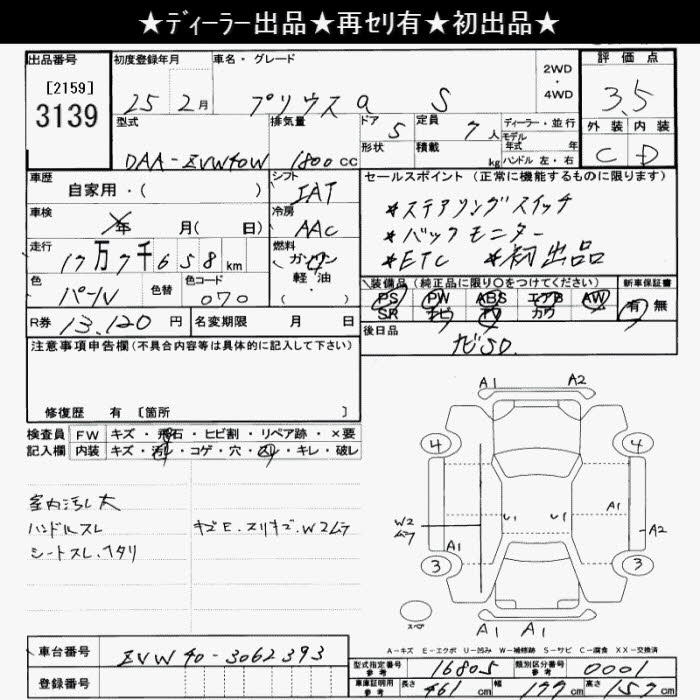 ★ディーラー出品★再セリ有★初出品★
出品番号 初度登録年月 車名・グレード 2WD・4WD 評価点
[2159]
3139 25 2月 プリウスα S 3.5
型式 排気量 ドア 5 定員 7人 ディーラー・並行 外装 内装
形状 積載 kg モデル年式 年 ハンドル 左・右 C D
DAA-ZVW40W 1800cc
車歴 自家用・( ) シフト IAT セールスポイント (正常に機能するものに限ります)
車検 年 月( 日) 冷房 AAC *ステアリングスイッチ
*バックモニター
走行 17万7千658km 燃料 ガソリン 軽油 ・( ) *ETC *初出品
色 パール 色替 色コード 070 装備品 (純正品に限り○をつけてください) 新車保証書
PS PW ABS エアB AW 有 無
SR ナビ TV カワ
R券 13,120円 名変期限 月 日 後日品
ナビSD.
注意事項申告欄(不具合内容等は具体的に記入して下さい)
修復歴 有 [箇所 ]
検査員 FW キズ・飛石・ヒビ割・リペア跡・×要
記入欄 内装 キズ・汚れ・コゲ・穴・凹・キレ・破レ
室内汚レ大
ハンドルスレ キズE.スリキズ.W2ムラ
シートスレ.ヘタリ
A1 A2
4 4
W2 ムラ A1 U1 U1 A1 A2
3 3
スペア A1 A1
A-キズ E-エクボ U-凹み W-補修跡 S-サビ C-腐食 XX-交換済
車台番号 ZVW40-3062393
型式指定番号 参考 16805 類別区分番号 参考 0001
登録番号 車庫証明用 参考 長さ 461cm 幅 177cm 高さ 157cm